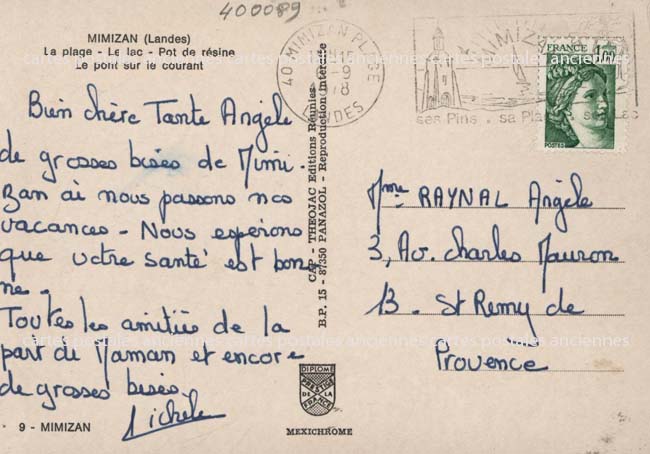 400089
MIMIZAN (Landes)
La plage - Le lac - Pot de résine
Le pont sur le courant
Bien chère Tante Angèle
de grosses bises de Mimi.
Zan où nous passons nos
vacances - Nous espérons
que votre santé est bon
ne.
Toutes les amitiés de la
part de Maman et encore
de grosses bises.
Michele
9 - MIMIZAN
CAP - THEOJAC Editions Réunies
B.P. 15 - 87350 PANAZOL - Reproduction Interdite
DIPLOME
PRESTIGE
DE LA
FRANCE
MEXICHROME
40 MIMIZAN PLAGE
LANDES
MIMIZAN
ses Pins . sa Plage . son Lac
FRANCE 1,00
POSTES
Mme RAYNAL Angèle
3, Av. Charles Mauron
13 - St Remy de
Provence
cartes postales anciennes